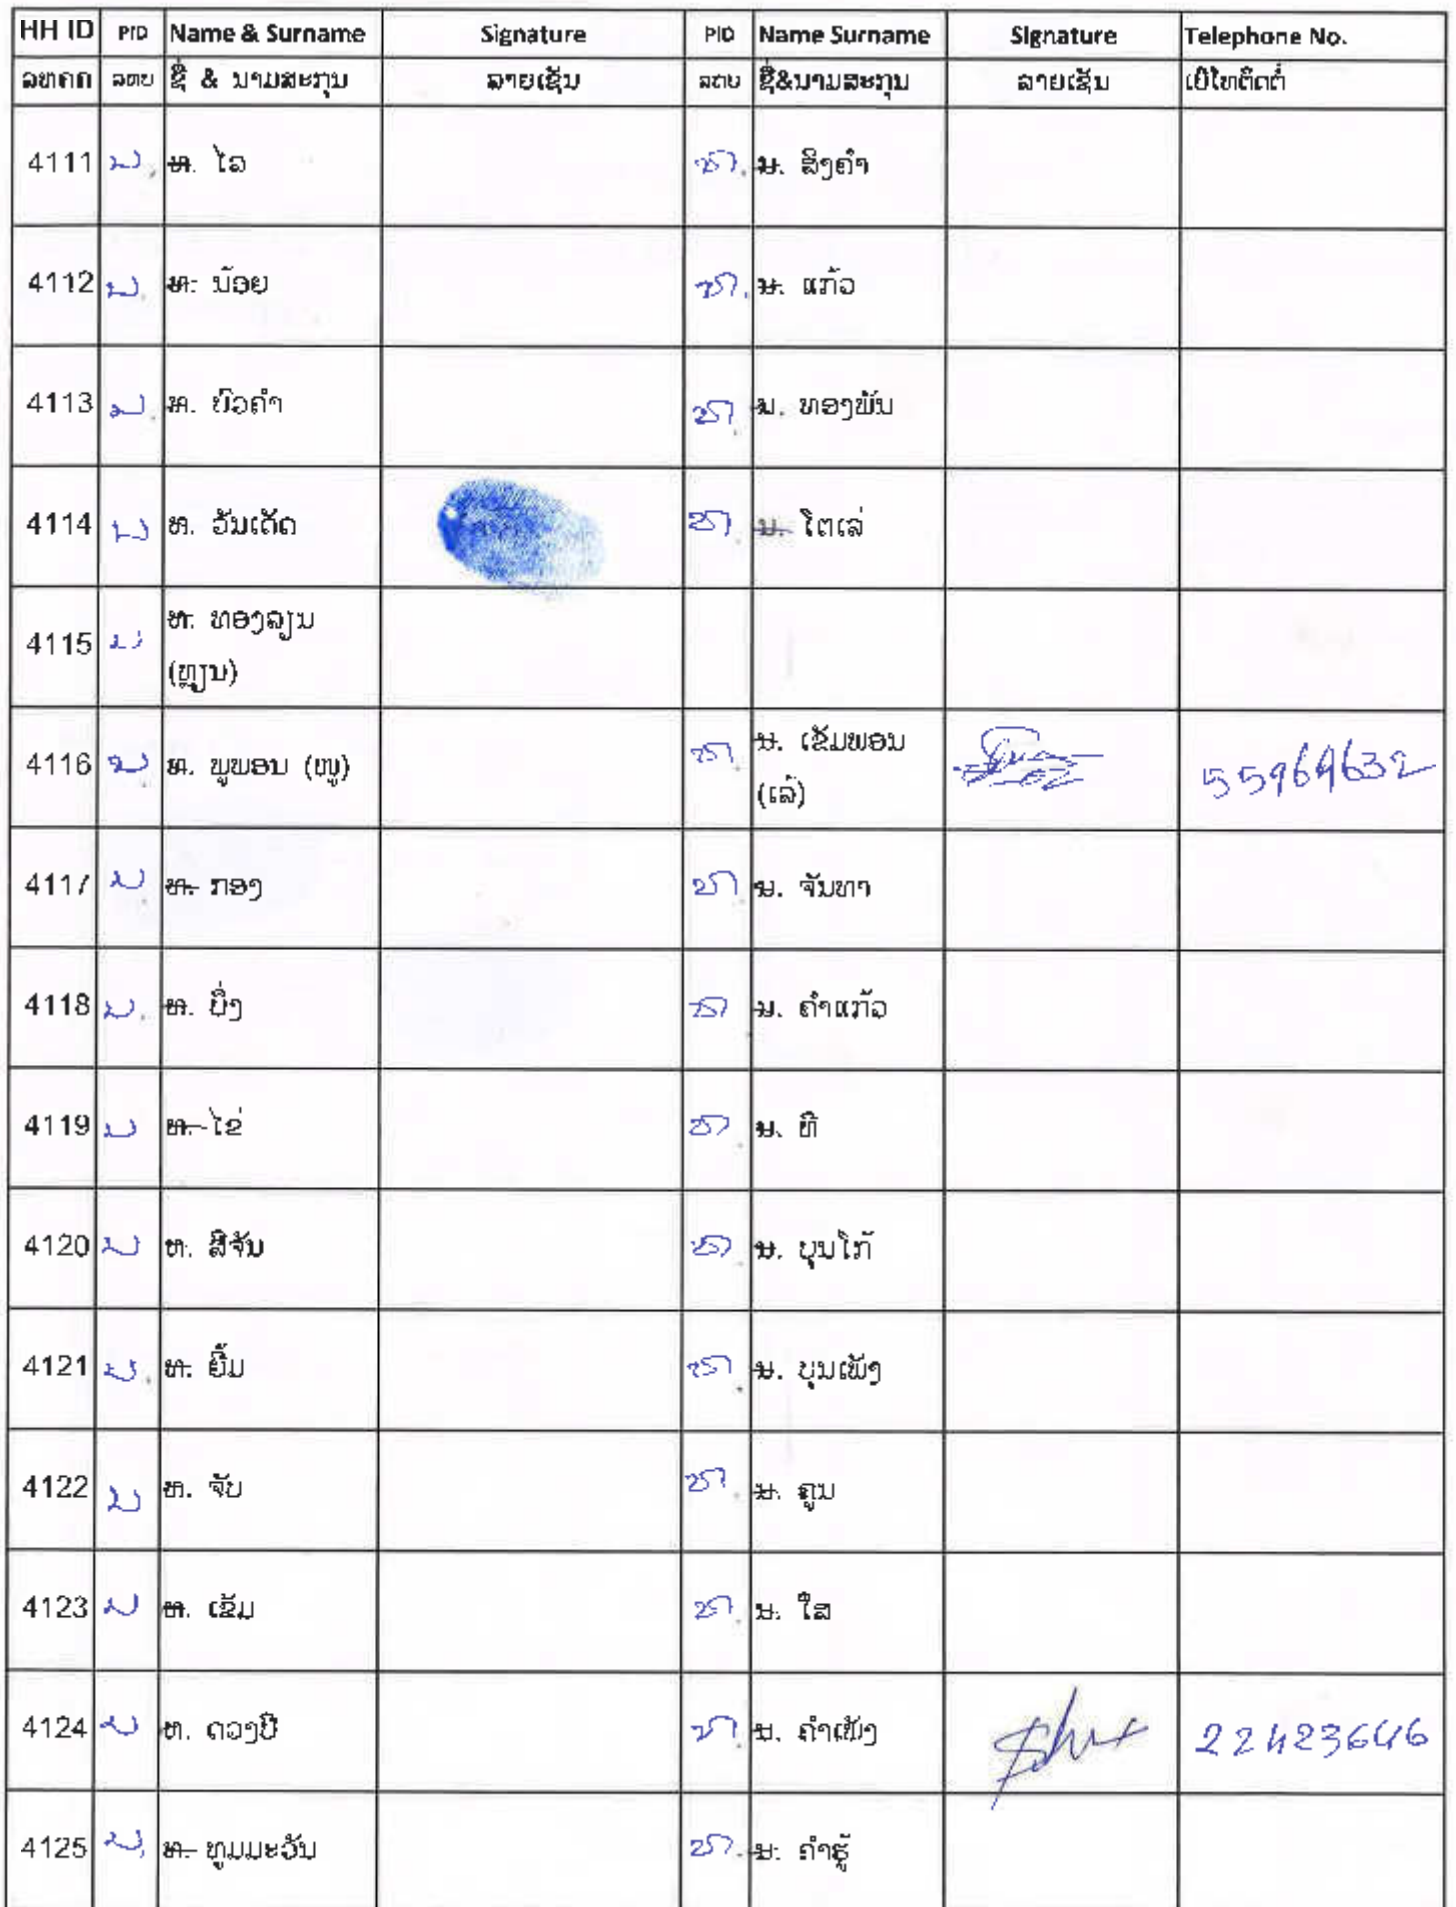 HH ID PID Name & Surname Signature PID Name Surname Signature Telephone No.
ລຫຄຄ ລຫບ ຊື່ & ນາມສະກຸນ ລາຍເຊັນ ລຫບ ຊື່&ນາມສະກຸນ ລາຍເຊັນ ເບີໂທຕິດຕໍ່
4111 ທ. ໄລ ນ. ສິງຄຳ
4112 ທ. ນ້ອຍ ນ. ແກ້ວ
4113 ທ. ບົວຄຳ ນ. ທອງພັນ
4114 ທ. ວັນເດັດ ນ. ໂຕເລ່
4115 ທ. ທອງລຽນ
(ຫຼຽນ)
4116 ທ. ພູພອນ (ໜູ) ນ. ເຂັມພອນ
(ເລ້) 55969632
4117 ທ. ກອງ ນ. ຈັນທາ
4118 ທ. ບຶ່ງ ນ. ຄຳແກ້ວ
4119 ທ. ໄຂ່ ນ. ທິ
4120 ທ. ສີຈັນ ນ. ບຸນໂກ້
4121 ທ. ຍິ້ມ ນ. ບຸນເພັງ
4122 ທ. ຈັບ ນ. ຄູນ
4123 ທ. ເຂັມ ນ. ໃສ
4124 ທ. ດວງປີ ນ. ຄຳເພັງ 22423646
4125 ທ. ທູມມະວັນ ນ. ຄຳຮູ້